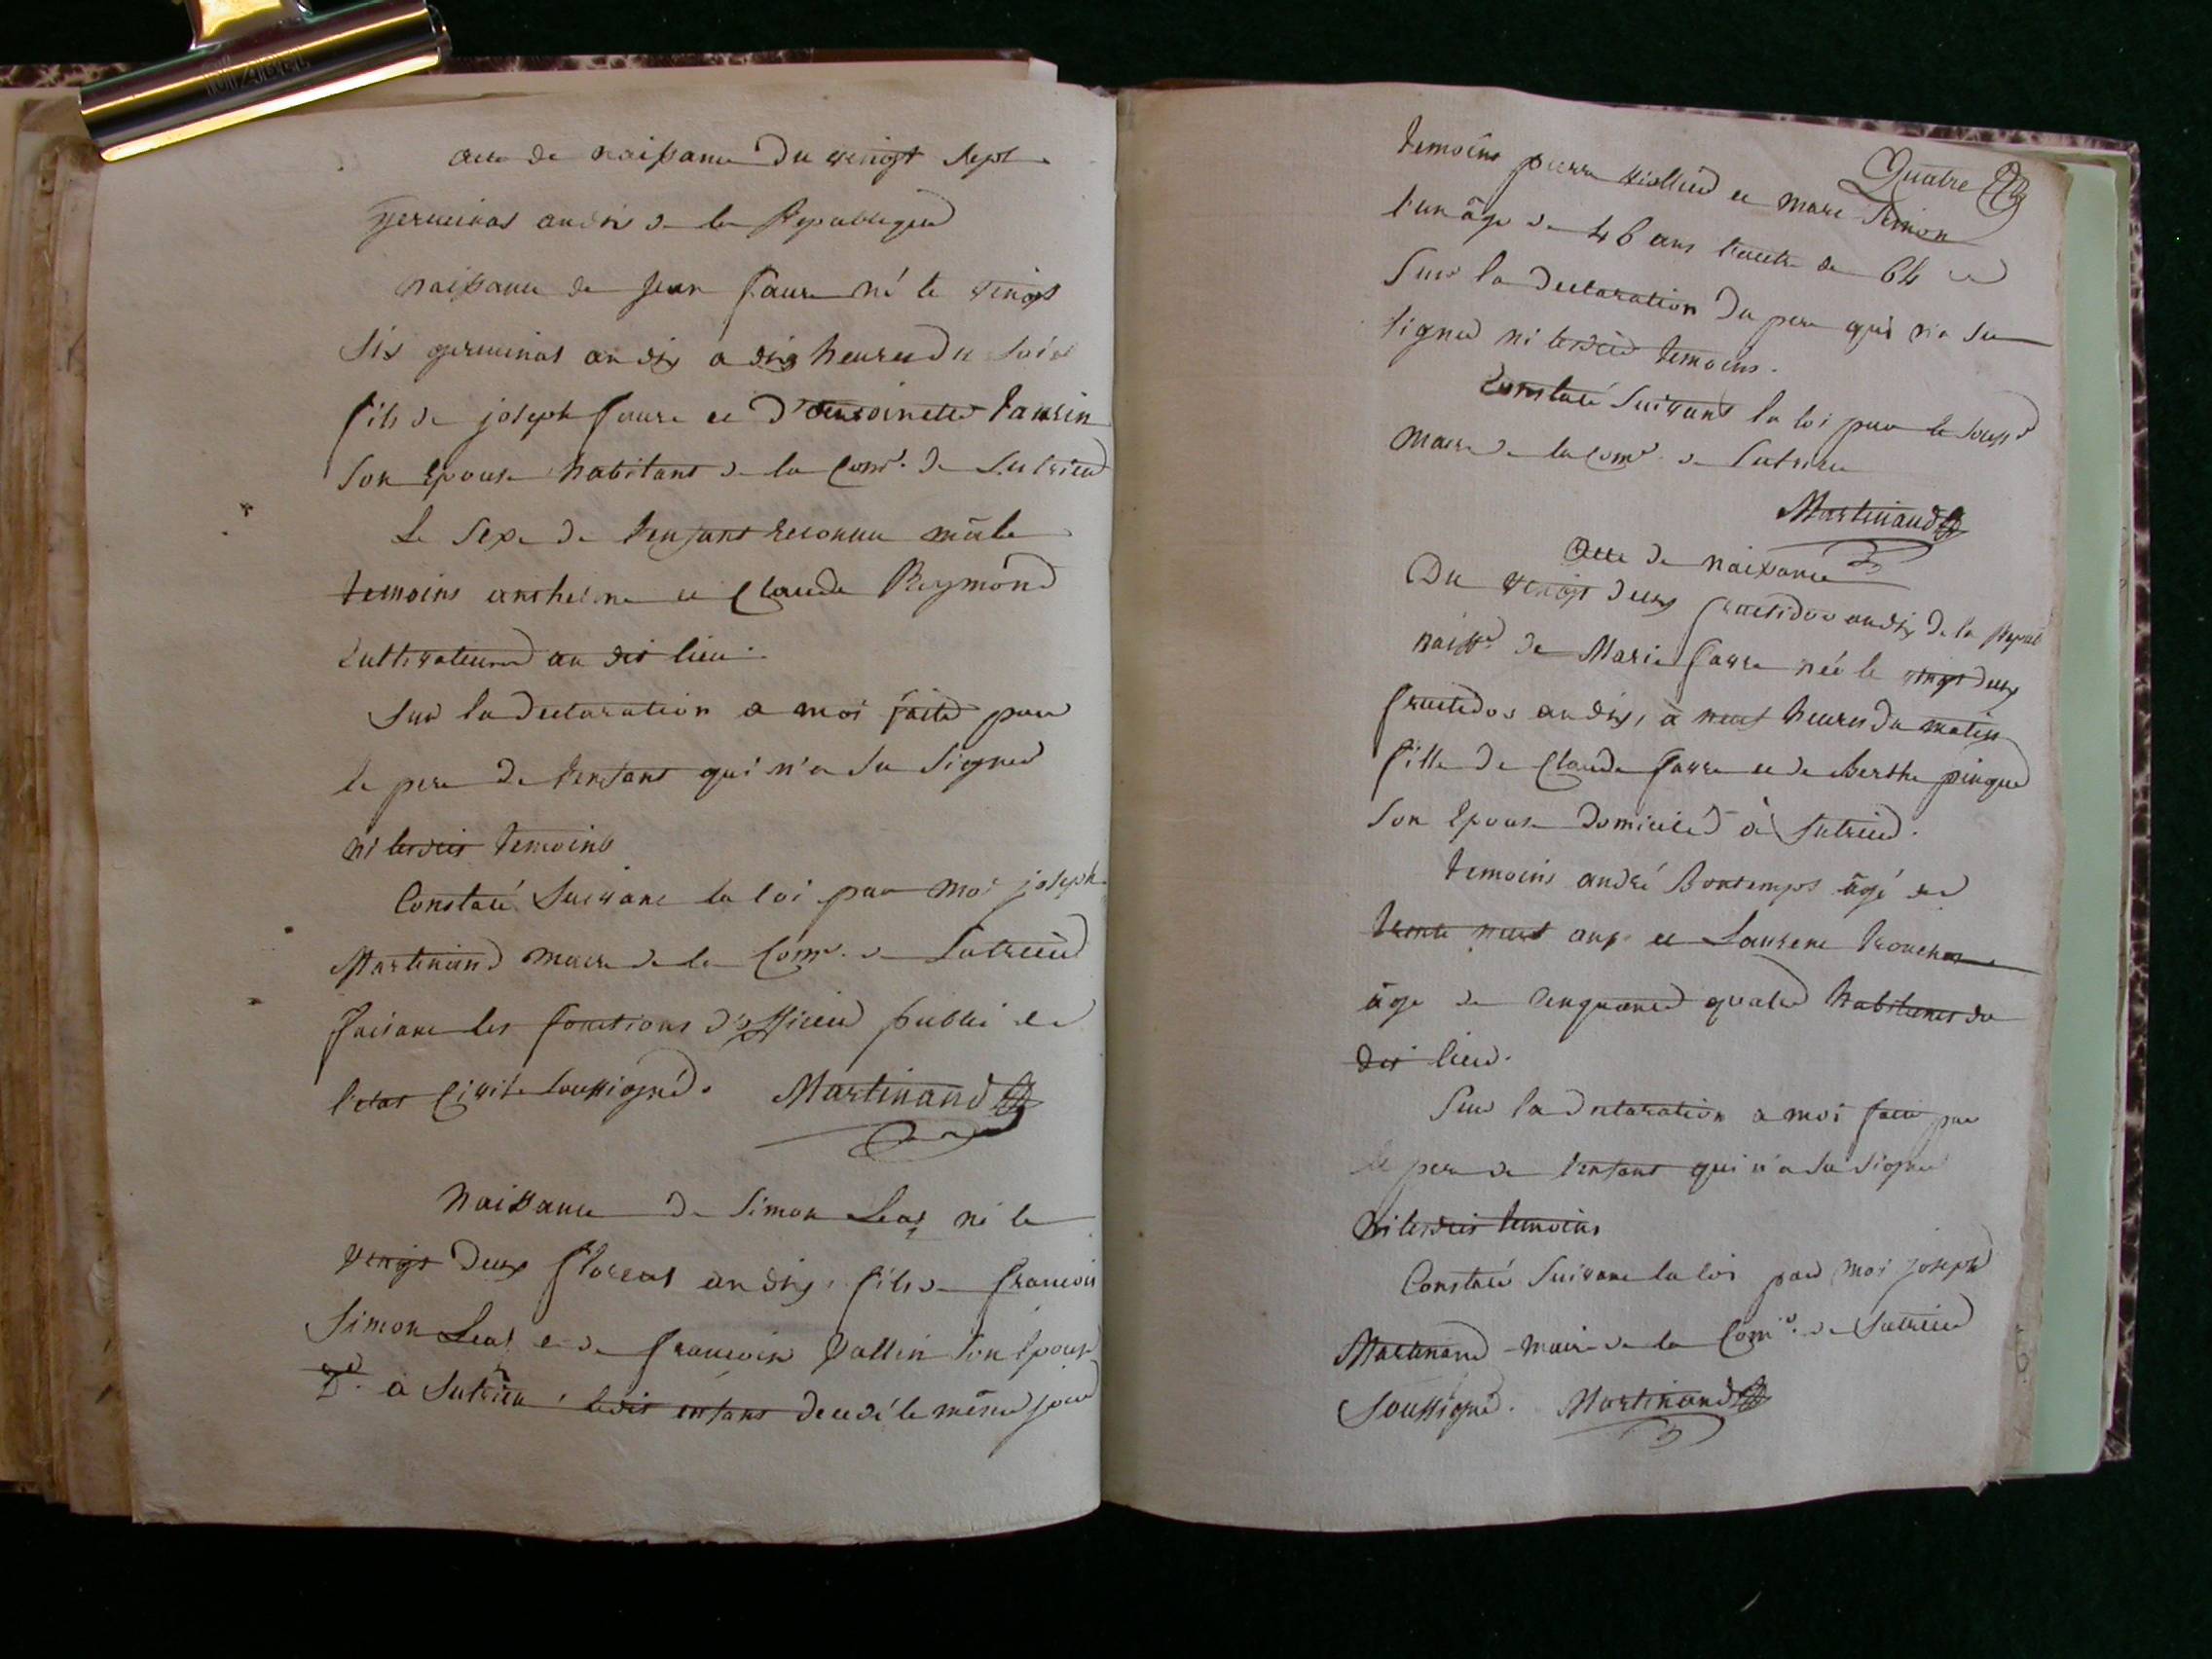 acte de naissance du vingt sept
germinal an dix de la Republique
naissance de Jean faure né le vingt
six germinal an dix a dix heures du soir
fils de joseph faure et d'antoinette
son epouse habitant de la Com.e de Sutrieu
le sexe de l'enfant reconnu mâle
temoins anthelme et Claude Reymond
Cultivateurs au dit lieu.
Sur la declaration a moi faite par
le pere de l'enfant qui n'a su signer
ni lesdits temoins
Constaté suivant la loi par moi joseph
Martinand maire de la Com.e de Sutrieu
faisant les fonctions d'officier public de
l'etat Civil soussigné. Martinand
Naissance de Simon né le
vingt deux floreal an dix, fils de francois
Simon et de francoise Vallin son epouse
D.t à Sutrieu, ledit enfant decedé le même jour
Quatre
temoins pierre et marc Simon
l'un âgé de 46 ans l'autre de 64
Sur la declaration du pere qui n'a su
signer ni lesdits temoins.
Constaté suivant la loi par le souss.é
maire de la Com.e de Sutrieu
Martinand
Acte de naissance
Du vingt deux fructidor an dix de la Repub
naiss.e de Marie faure née le vingt deux
fructidor an dix, à neuf heures du matin
fille de Claude faure et de Berthe
son epouse domiciliés à Sutrieu.
temoins andré Bontemps âgé de
trente neuf ans et Laurent
âgé de cinquante quatre habitants du
dit lieu.
Sur la declaration a moi faite par
le pere de l'enfant qui n'a su signer
ni lesdits temoins
Constaté suivant la loi par moi joseph
Martinand maire de la Com.e de Sutrieu
soussigné. Martinand